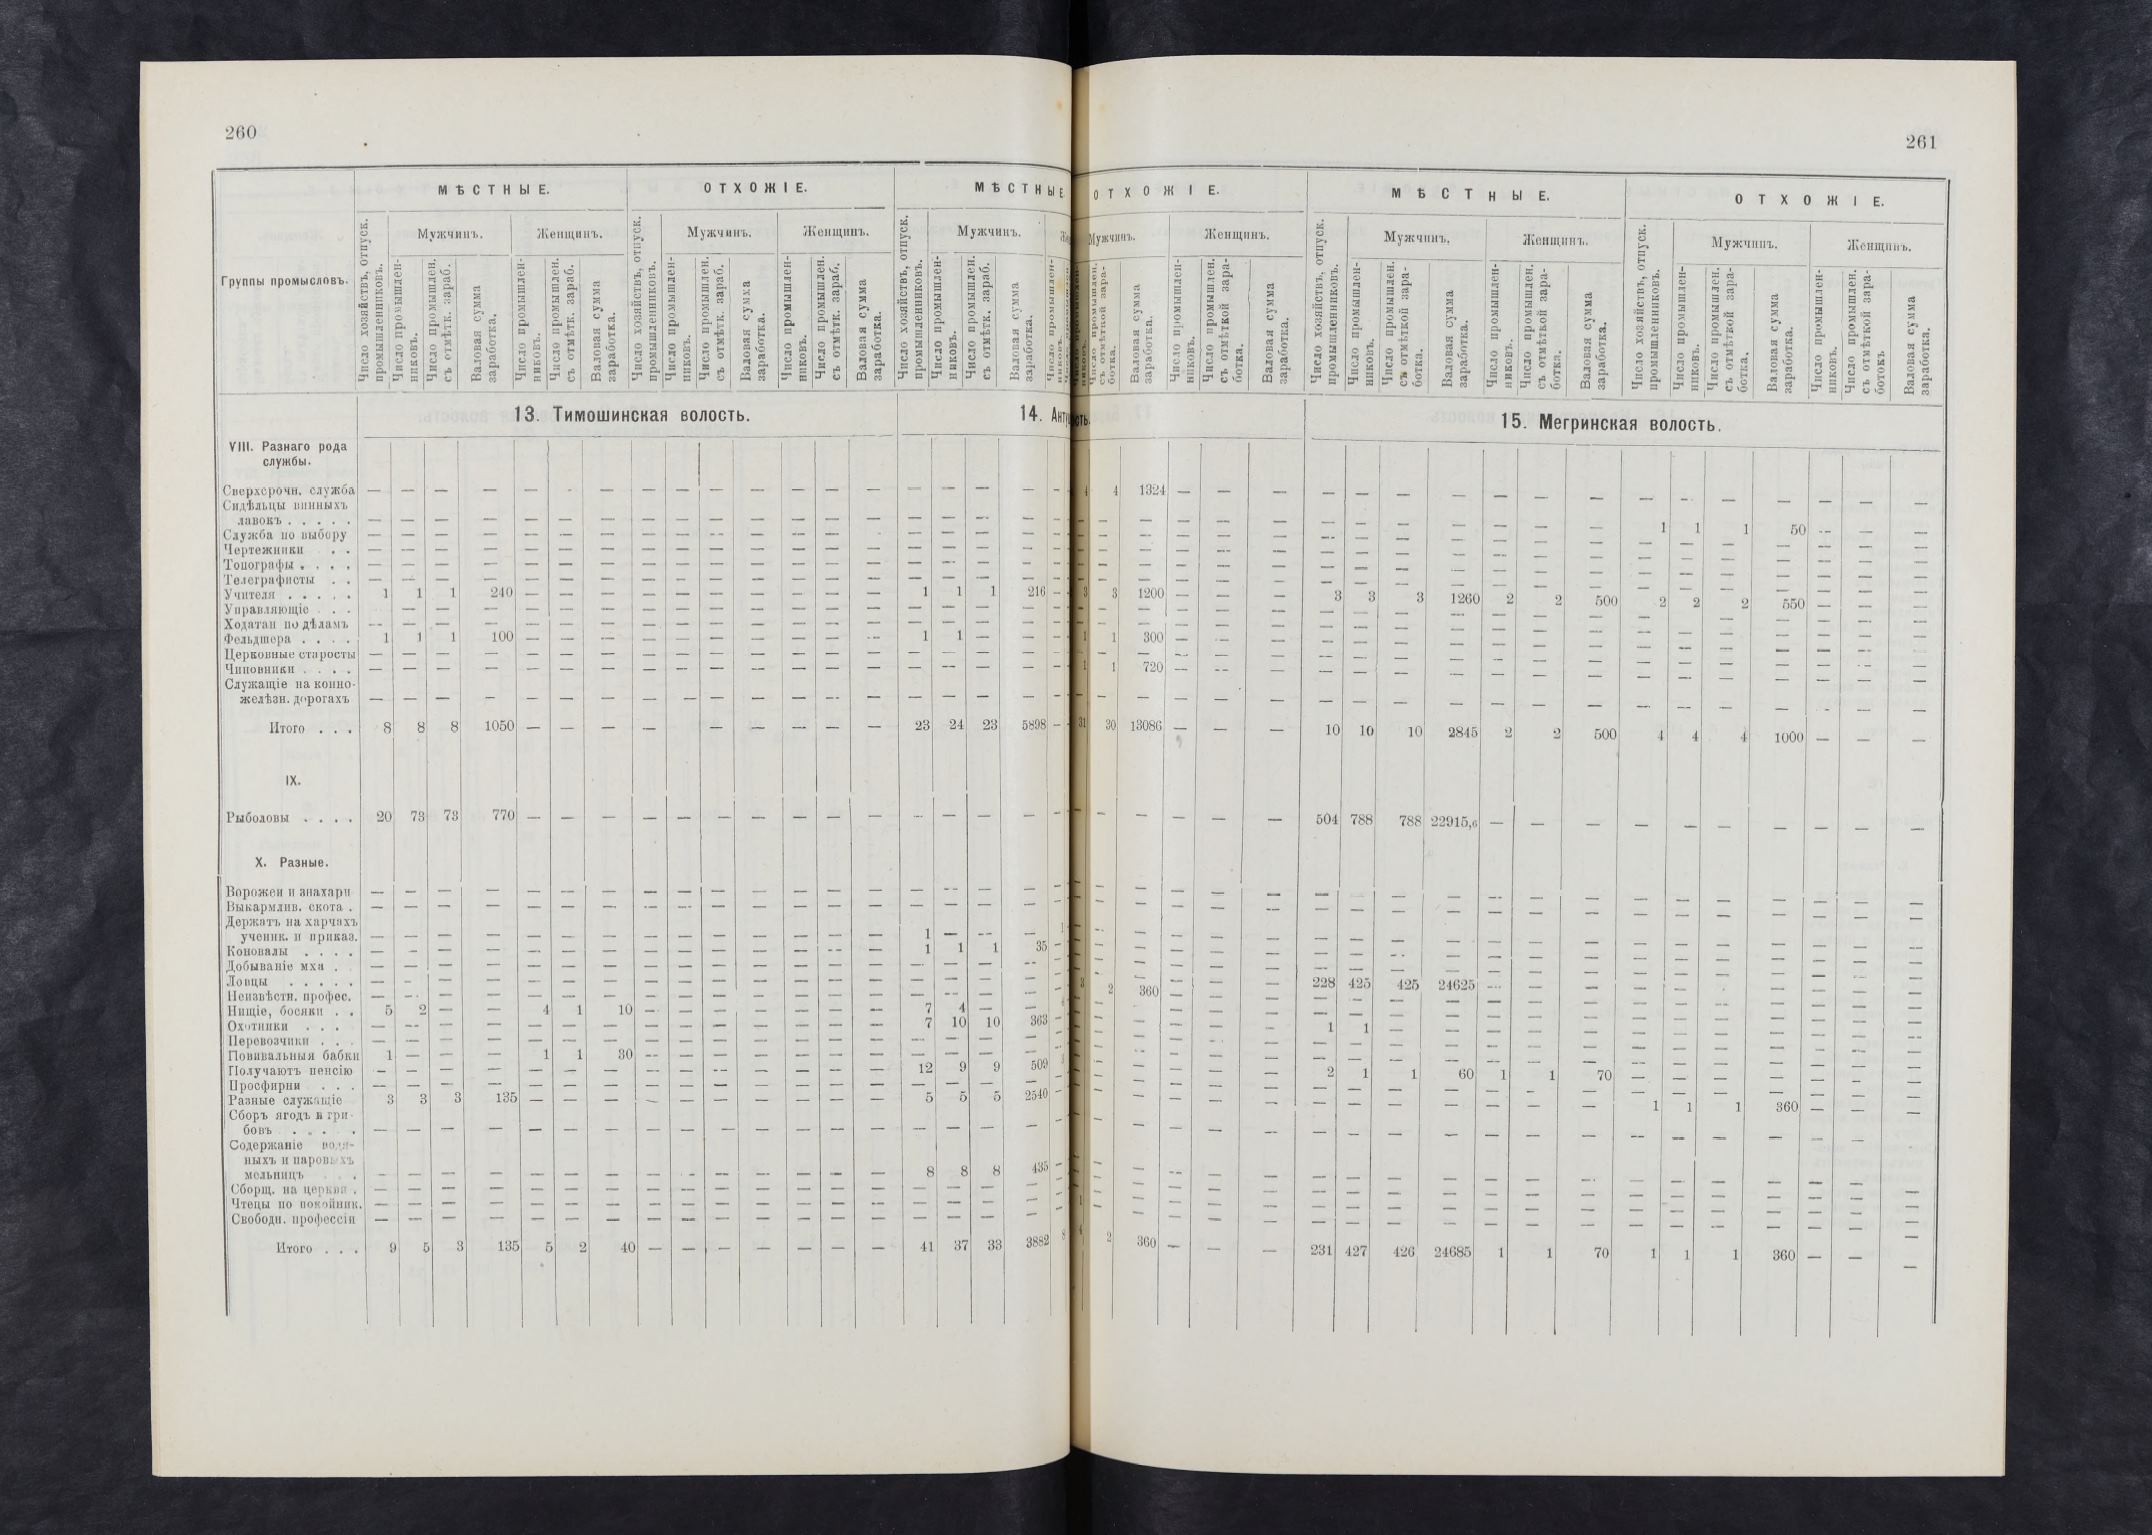 260
261
МѢСТНЫЕ. ОТХОЖІЕ. МѢСТНЫЕ ОТХОЖІЕ. МѢСТНЫЕ. ОТХОЖІЕ.
Группы промысловъ.
Мужчинъ. Женщинъ. Мужчинъ. Женщинъ. Мужчинъ. Мужчинъ. Женщинъ. Мужчинъ. Женщинъ. Мужчинъ. Женщинъ.
Число хозяйствъ, отпуск. промышленниковъ.
Число промышленниковъ.
Число промышлен. съ отмѣтк. зараб.
Валовая сумма заработка.
Число промышленниковъ.
Число промышлен. съ отмѣтк. зараб.
Валовая сумма заработка.
Число хозяйствъ, отпуск. промышленниковъ.
Число промышленниковъ.
Число промышлен. съ отмѣтк. зараб.
Валовая сумма заработка.
Число промышленниковъ.
Число промышлен. съ отмѣтк. зараб.
Валовая сумма заработка.
Число хозяйствъ, отпуск. промышленниковъ.
Число промышленниковъ.
Число промышлен. съ отмѣтк. зараб.
Валовая сумма заработка.
Валовая сумма заработка.
Число промышленниковъ.
Число промышлен. съ отмѣткой заработка.
Валовая сумма заработка.
Число хозяйствъ, отпуск. промышленниковъ.
Число промышленниковъ.
Число промышлен. съ отмѣткой заработка.
Валовая сумма заработка.
Число промышленниковъ.
Число промышлен. съ отмѣткой заработка.
Валовая сумма заработка.
Число хозяйствъ, отпуск. промышленниковъ.
Число промышленниковъ.
Число промышлен. съ отмѣткой заработка.
Валовая сумма заработка.
Число промышленниковъ.
Число промышлен. съ отмѣткой заработок
Валовая сумма заработка.
13. Тимошинская волость. 14. Ант сть. 15. Мегринская волость.
VIII. Разнаго рода
службы.
Сверхсрочн. служба — — — — — — — — — — — — — — — — — — 4 4 1324 — — — — — — — — — — — — — — — — —
Сидѣльцы винныхъ
лавокъ . . . . . — — — — — — — — — — — — — — — — — — — — — — — — — — — — — — — 1 1 1 50 — — —
Служба по выбору — — — — — — — — — — — — — — — — — —
Чертежники . . — — — — — — — — — — — — — — — — — —
Топографы . . . . — — — — — — — — — — — — — — — — — —
Телеграфисты . . — — — — — — — — — — — — — — — — — —
Учителя . . . . . 1 1 1 240 — — — — — — — — — — 1 1 1 216 — 3 3 1200 — — — 3 3 3 1260 2 2 500 2 2 2 550 — — —
Управляющіе . . . — — — — — — — — — — — — — — — — —
Ходатаи по дѣламъ — — — — — — — — — — — — — — — — — —
Фельдшера . . . . 1 1 1 100 — — — — — — — — — — 1 1 — — — 1 1 300 — — — — — — — — — — — — — — — — —
Церковные старосты — — — — — — — — — — — — — — — — — —
Чиновники . . . . — — — — — — — — — — — — — — — — — — 1 1 720 — — — — — — — — — — — — — — — — —
Служащіе на конно-
желѣзн. дорогахъ — — — — — — — — — — — — — — — — — —
Итого . . . 8 8 8 1050 — — — — — — — — — — 23 24 23 5898 — 31 30 13086 — — — 10 10 10 2845 2 2 500 4 4 4 1000 — — —
IX.
Рыболовы . . . . 20 73 73 770 — — — — — — — — — — — — — — — — — — — — 504 788 788 22915,6 — — — — — — — — — —
X. Разные.
Ворожеи и знахари — — — — — — — — — — — — — — — — — —
Выкармлив. скота . — — — — — — — — — — — — — — — — — —
Держатъ на харчахъ
ученик. и приказ. — — — — — — — — — — — — — — 1 — — —
Коновалы . . . . — — — — — — — — — — — — — — 1 1 1 35 —
Добываніе мха . — — — — — — — — — — — — — — — — — —
Ловцы . . . . . — — — — — — — — — — — — — — — — — — — — — — — — 228 425 425 24625 — — — — — — — — — —
Неизвѣстн. профес. — — — — — — — — — — — — — — — — — — 3 2 360 — — —
Нищіе, босяки . . 5 2 — — 4 1 10 — — — — — — — 7 4 — —
Охотники . . . — — — — — — — — — — — — — — 7 10 10 363 — 1 1 — — — — — — — — — — — —
Перевозчики . . . — — — — — — — — — — — — — — — — — —
Повивальныя бабки 1 — — — 1 1 30 — — — — — — — — — — —
Получаютъ пенсію — — — — — — — — — — — — — — 12 9 9 509 2 1 1 60 1 1 70 — — — — — — —
Просфирни . . . — — — — — — — — — — — — — — — — — —
Разные служащіе 3 3 3 135 — — — — — — — — — — 5 5 5 2540 — — — — — — — 1 1 1 360 — — —
Сборъ ягодъ и гри-
бовъ . . . . — — — — — — — — — — — — — — — — — —
Содержаніе водя-
ныхъ и паровыхъ
мельницъ . . . — — — — — — — — — — — — — — 8 8 8 435 —
Сборщ. на церкви . — — — — — — — — — — — — — — — — — —
Чтецы по покойник. — — — — — — — — — — — — — — — — — —
Свободн. профессіи — — — — — — — — — — — — — — — — — —
Итого . . . 9 5 3 135 5 2 40 — — — — — — — 41 37 33 3882 8 4 2 360 — — — 231 427 426 24685 1 1 70 1 1 1 360 — — —